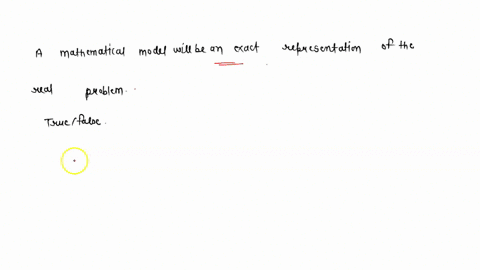 A mathematical model will be an exact representation of the
real problem.
True/false.